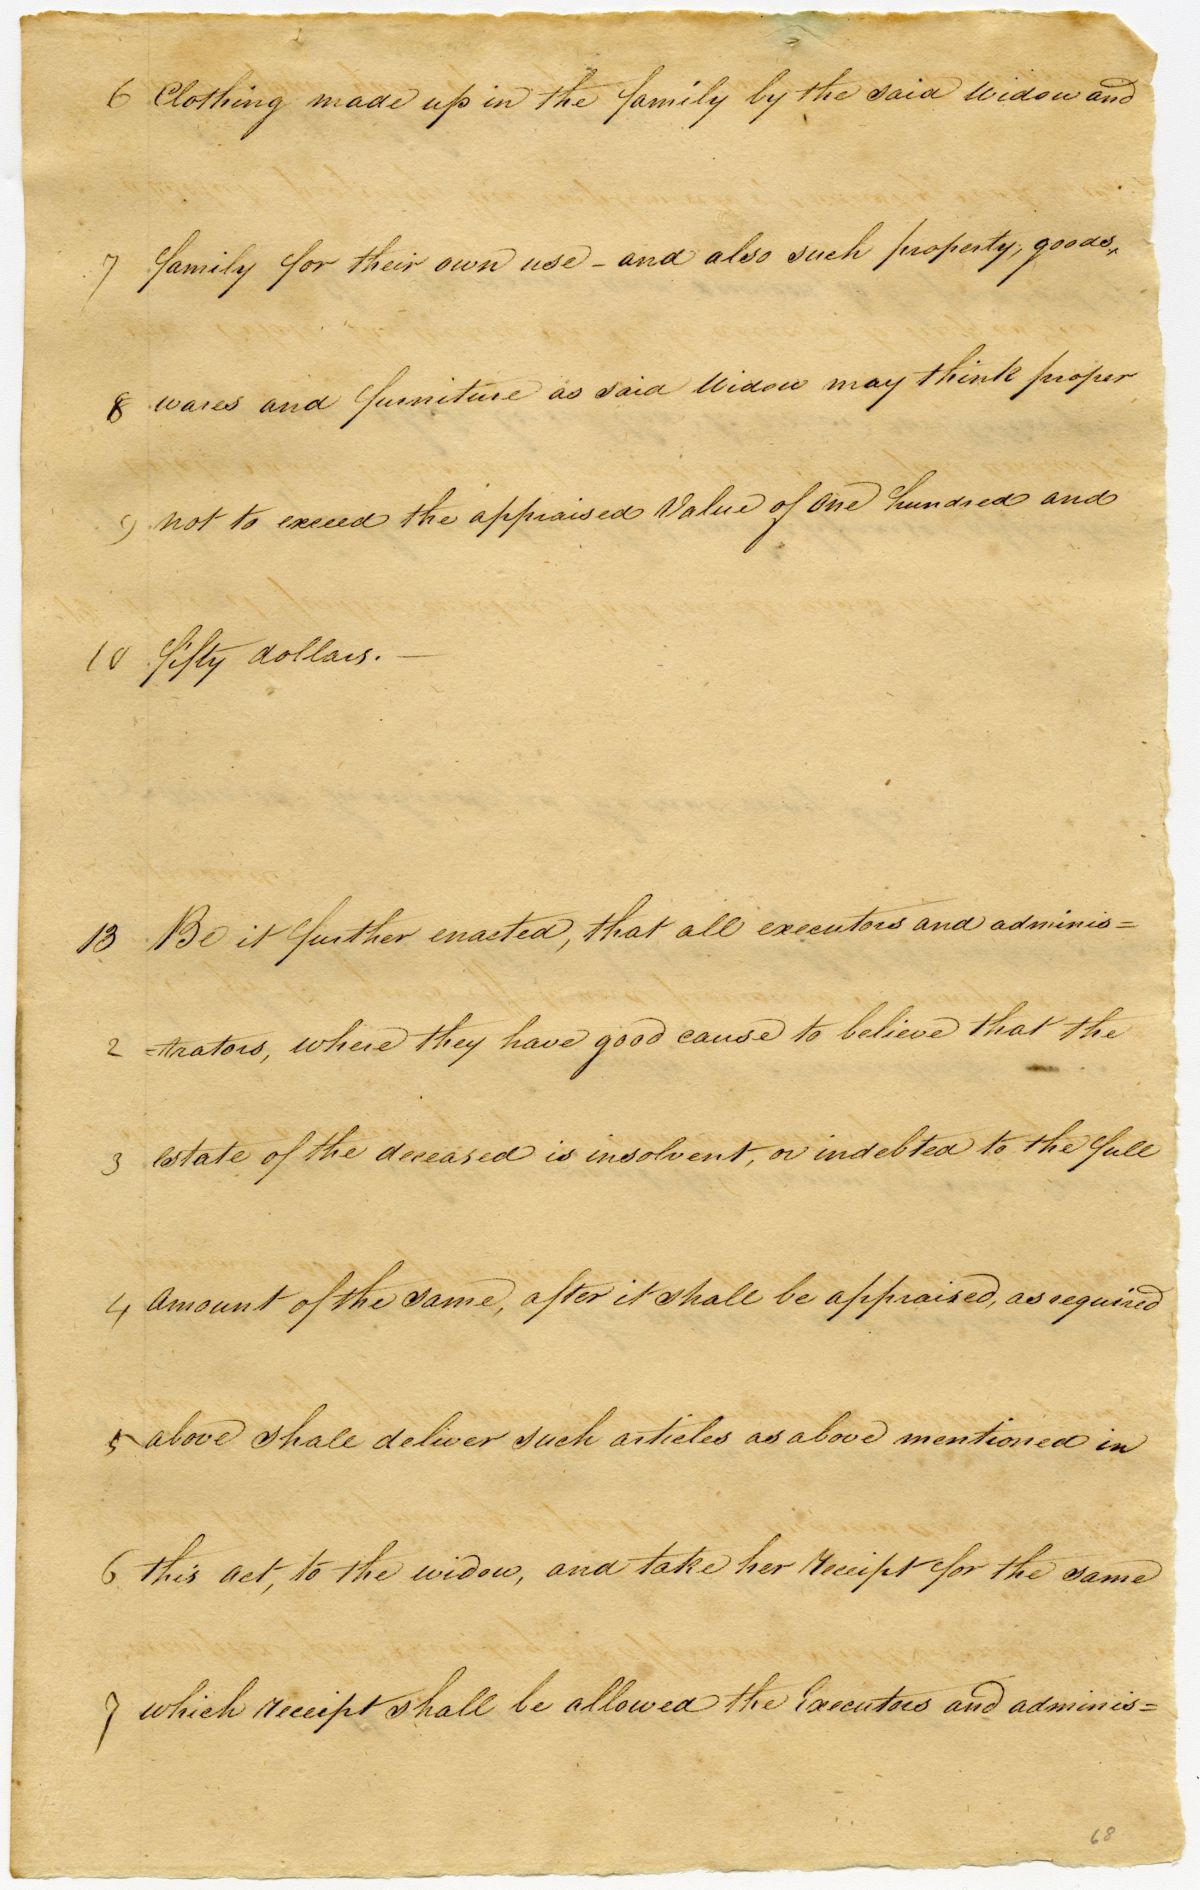 6 Clothing made up in the family by the said Widow and
7 family for their own use - and also such property, goods,
8 wares and furniture as said Widow may think proper
9 not to exceed the appraised Value of One hundred and
10 fifty dollars. —
13 Be it further enacted, that all executors and adminis=
2 =trators, where they have good cause to believe that the
3 estate of the deceased is insolvent, or indebted to the full
4 Amount of the same, after it shall be appraised, as required
5 above shall deliver such articles as above mentioned in
6 this act, to the widow, and take her receipt for the same
7 which receipt shall be allowed the Executors and adminis=
68